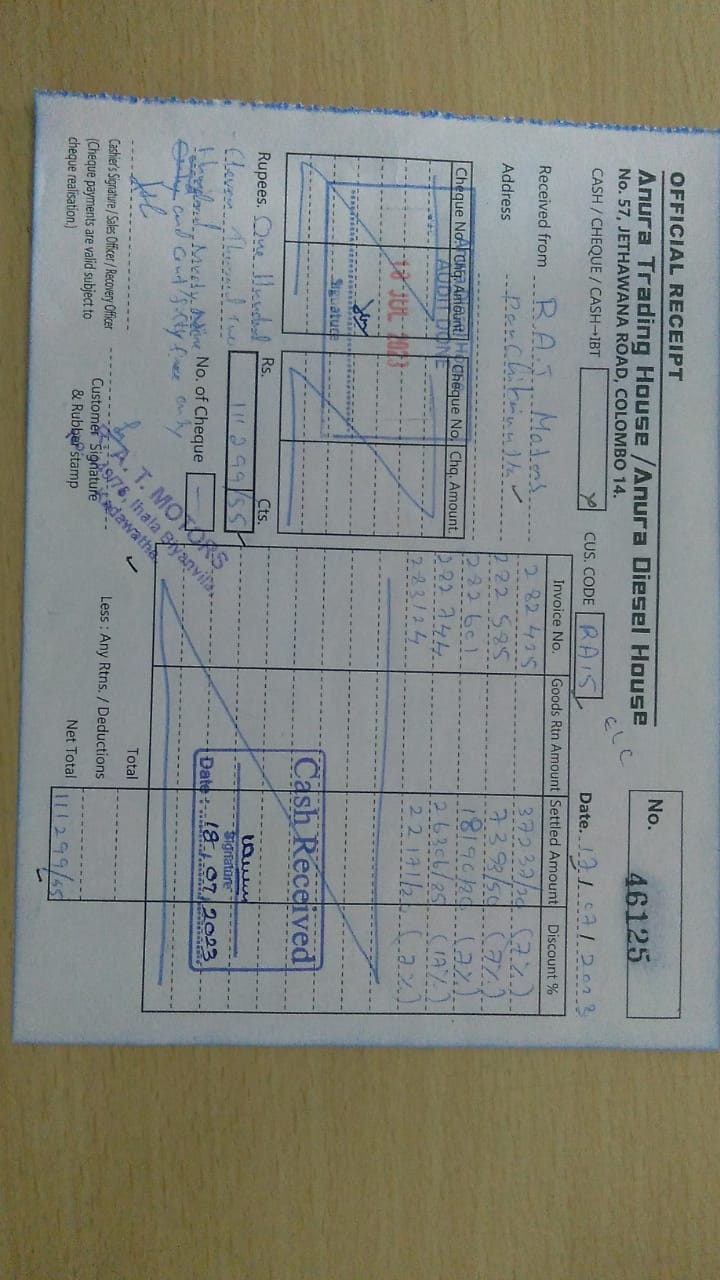 OFFICIAL RECEIPT
Anura Trading House / Anura Diesel House
No. 57, JETHAWANA ROAD, COLOMBO 14.
No. 46125
CASH / CHEQUE / CASH→IBT
CUS. CODE RA15
CLC
Date. 17 / 07 / 2023
Received from R.A.T. Motors
Address
Cheque No. Chq. Amount Cheque No. Chq. Amount
AUDIT DONE
18 JUL 2023
Signature
Invoice No. Goods Rtn Amount Settled Amount Discount %
282425 37237/20 (7%)
282585 7393/50 (7%)
282601 18190/20 (7%)
282744 26306/85 (17%)
283124 22171/20 (7%)
Rupees. One Hundred
Eleven Thousand Two
Hundred Ninety Nine
and cents fifty five only
Rs. Cts.
111299/55
No. of Cheque —
Cash Received
Signature
Date : 18/07/2023
Total
Less : Any Rtns. / Deductions
Net Total 111299/55
Cashier's Signature / Sales Officer / Recovery Officer
(Cheque payments are valid subject to
cheque realisation.)
Customer Signature
& Rubber stamp
R. A. T. MOTORS
Ihala Biyanvila,
Kadawatha